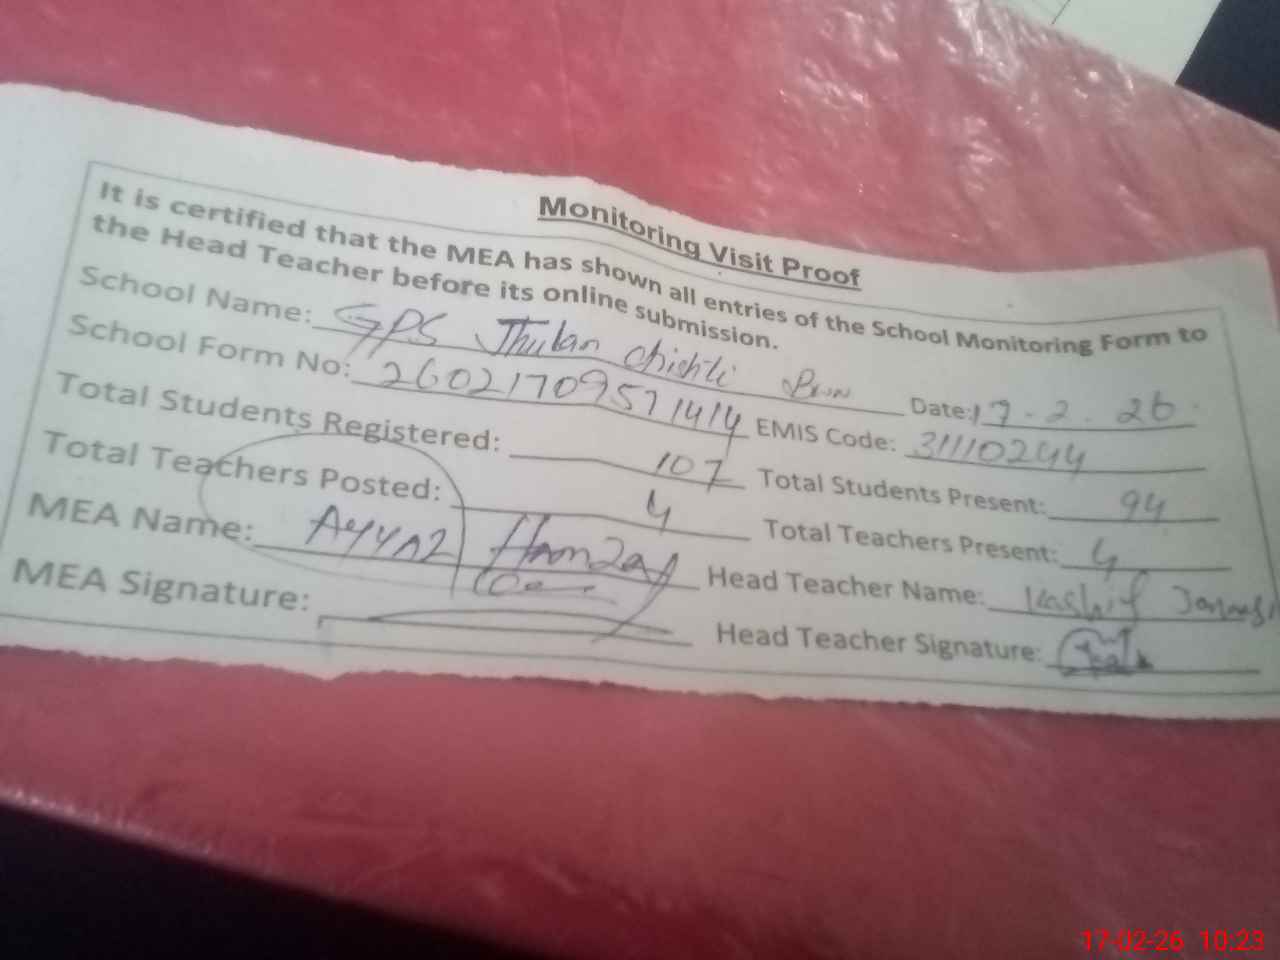 Monitoring Visit Proof
It is certified that the MEA has shown all entries of the School Monitoring Form to
the Head Teacher before its online submission.
School Name: GPS Jhulan chishti Date: 17.2.26
School Form No: 26021709571414 EMIS Code: 31110244
Total Students Registered: 107 Total Students Present: 94
Total Teachers Posted: 4 Total Teachers Present: 4
MEA Name: Ayyaz Hamza Head Teacher Name: Kashif
MEA Signature: Head Teacher Signature:
17-02-26 10:23